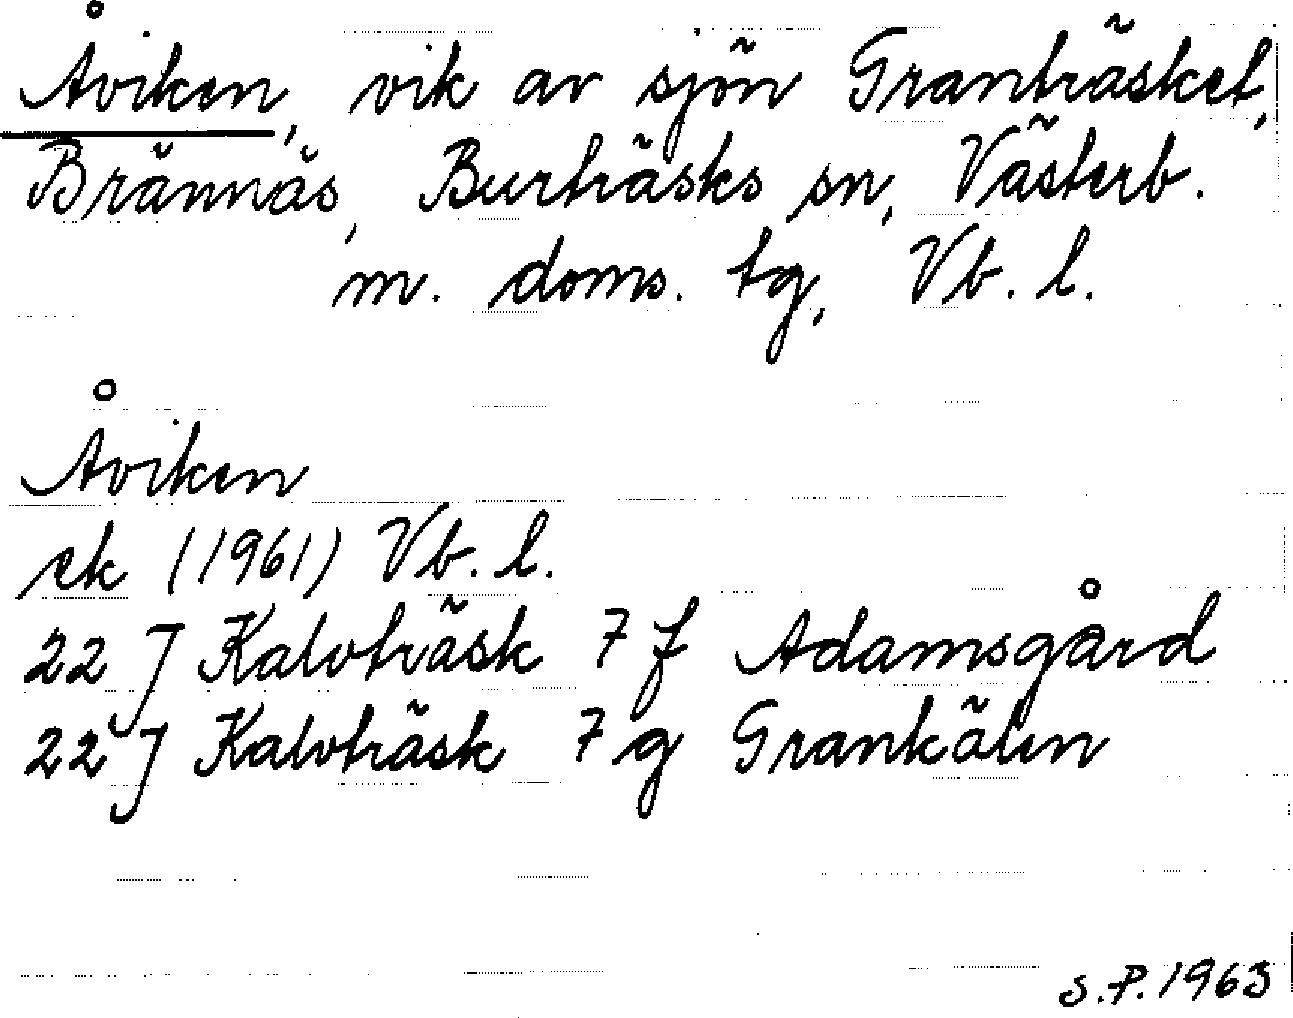 Åviken, vik av sjön Granträsket,
Brännäs, Burträsks sn, Västerb.
m. doms. tg, Vb. l.
Åviken
ek (1961) Vb. l.
22 J Kalvträsk 7 f Adamsgård
22 J Kalvträsk 7 g Grankälen
S.P. 1963